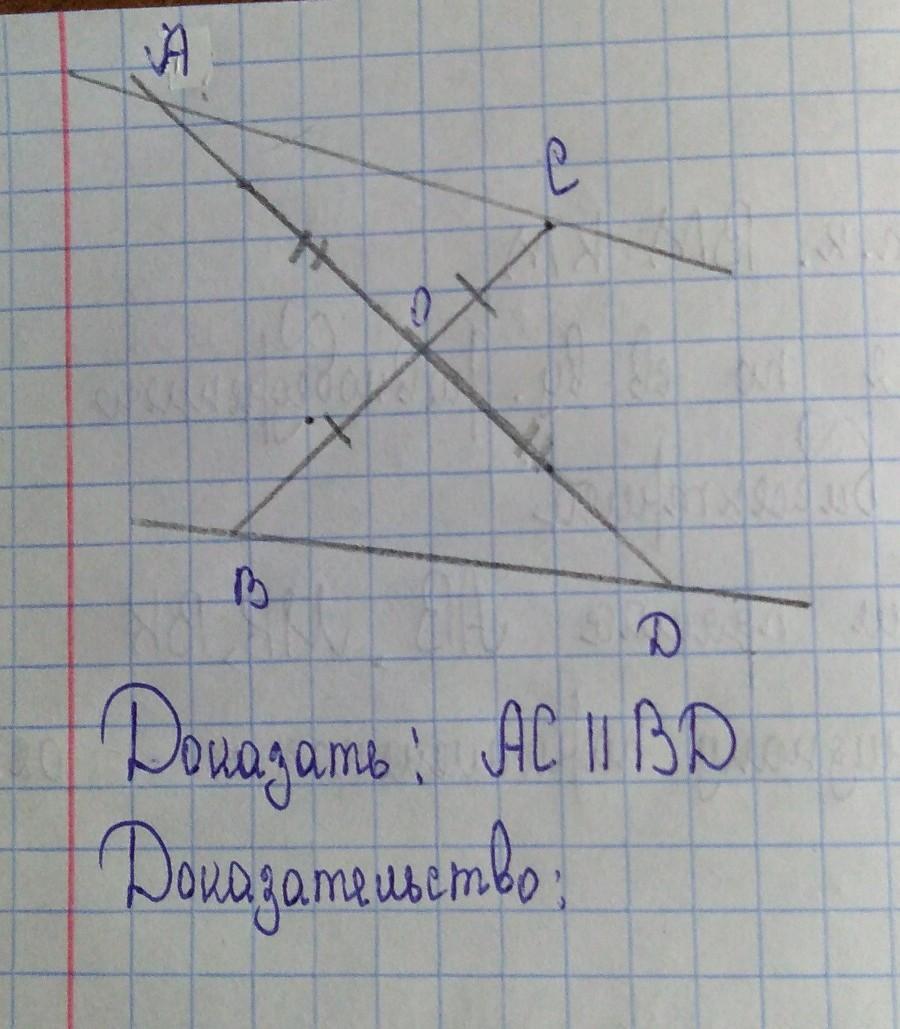 A
C
O
B
D
Доказать: AC || BD
Доказательство: